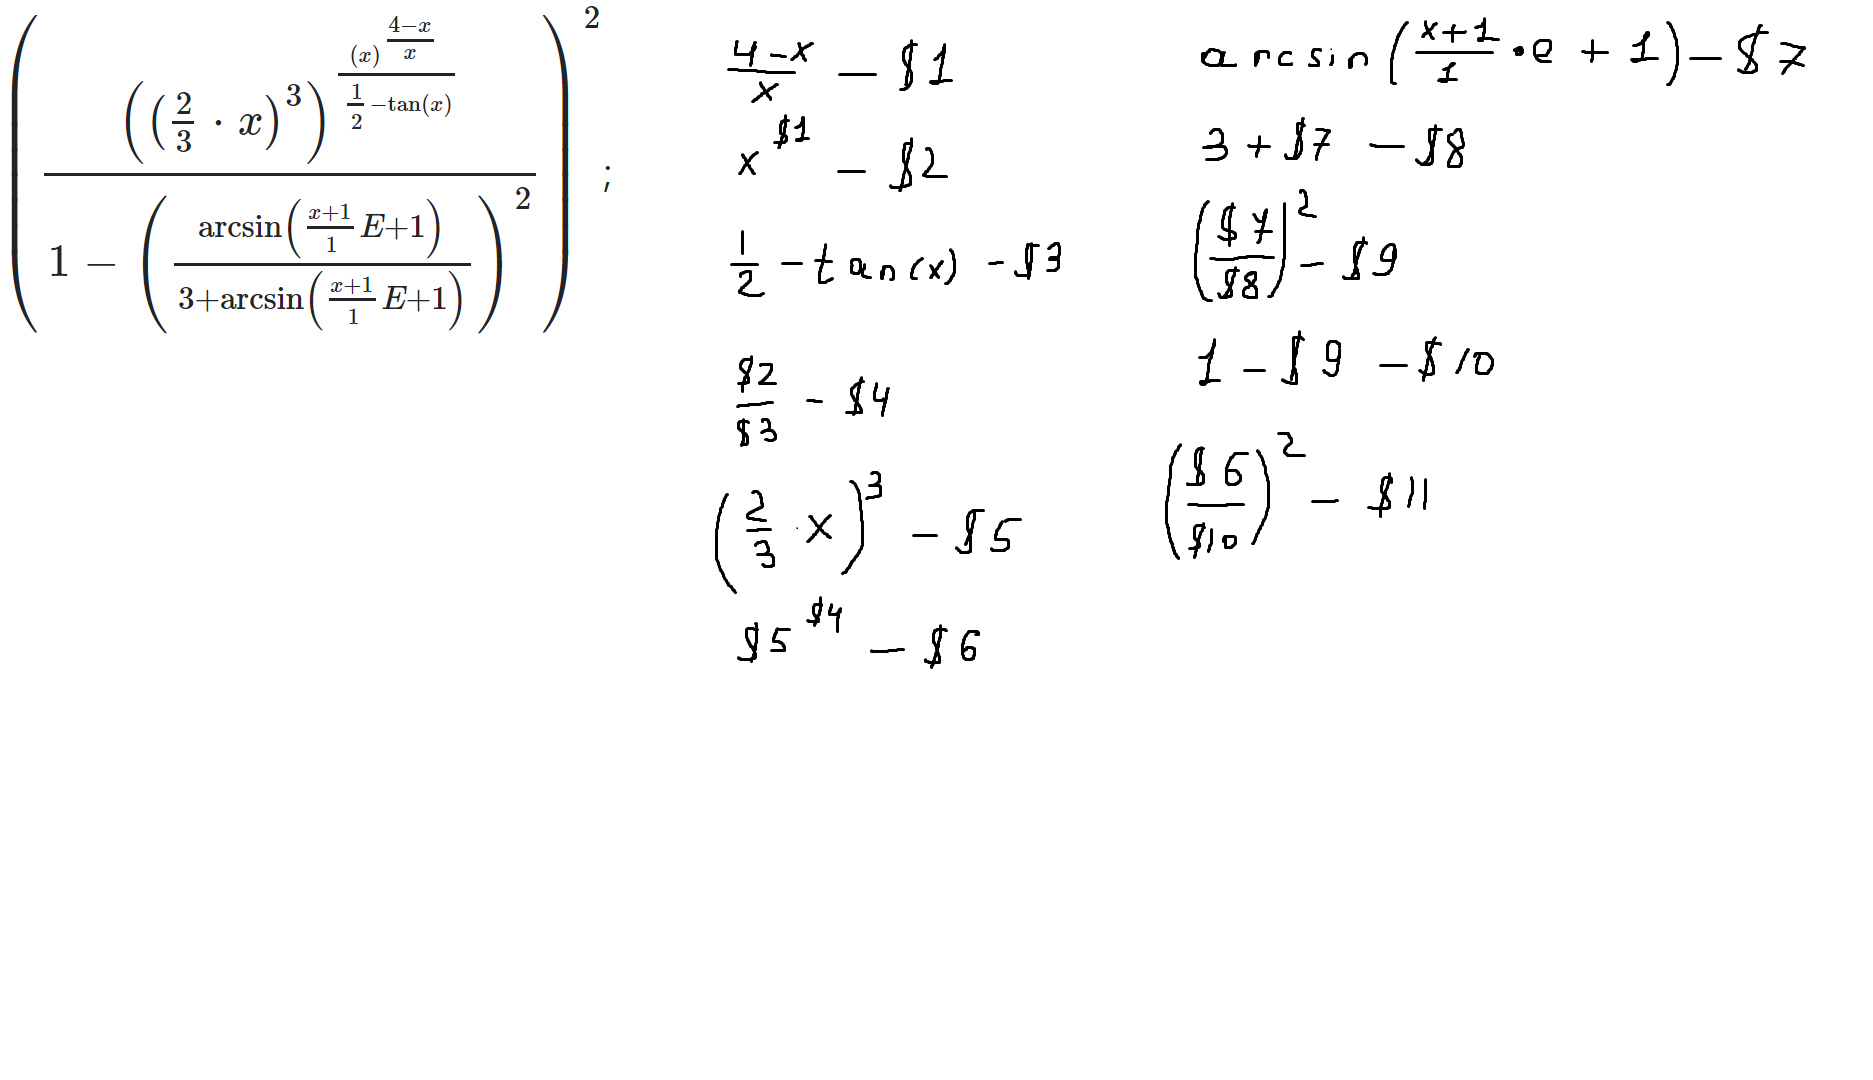 ( ((2/3 · x)^3)^((x)^((4−x)/x) / (1/2 −tan(x))) / (1 − (arcsin((x+1)/1 E+1) / (3+arcsin((x+1)/1 E+1)))^2) )^2 ;
(4-x)/x - $1
x^$1 - $2
1/2 - tan(x) - $3
$2/$3 - $4
(2/3 · x)^3 - $5
$5^$4 - $6
arcsin((x+1)/1 · e + 1) - $7
3 + $7 - $8
($7/$8)^2 - $9
1 - $9 - $10
($6/$10)^2 - $11